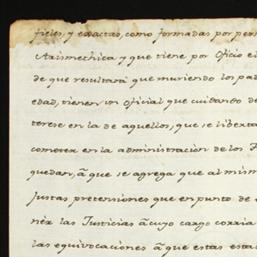 fieles, y exactas, como formadas por per
Arismethica y que tiene por Oficio el
de que resultará que muriendo los pad
edad, tienen un Oficial que cuidando de
terese en la de aquellos, que se liberta
cometer en la administracion de los
quedan, â que se agrega que al mism
justas pretensiones que en punto de
nèr las Justicias â cuyo cargo corria
las equivocaciones â que estas esta